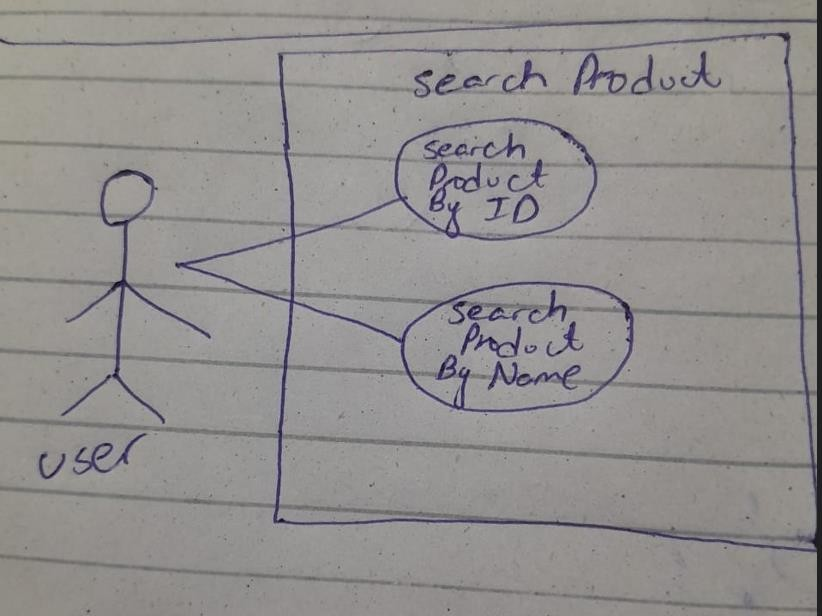 search Product
search
Product
By ID
search
Product
By Name
user